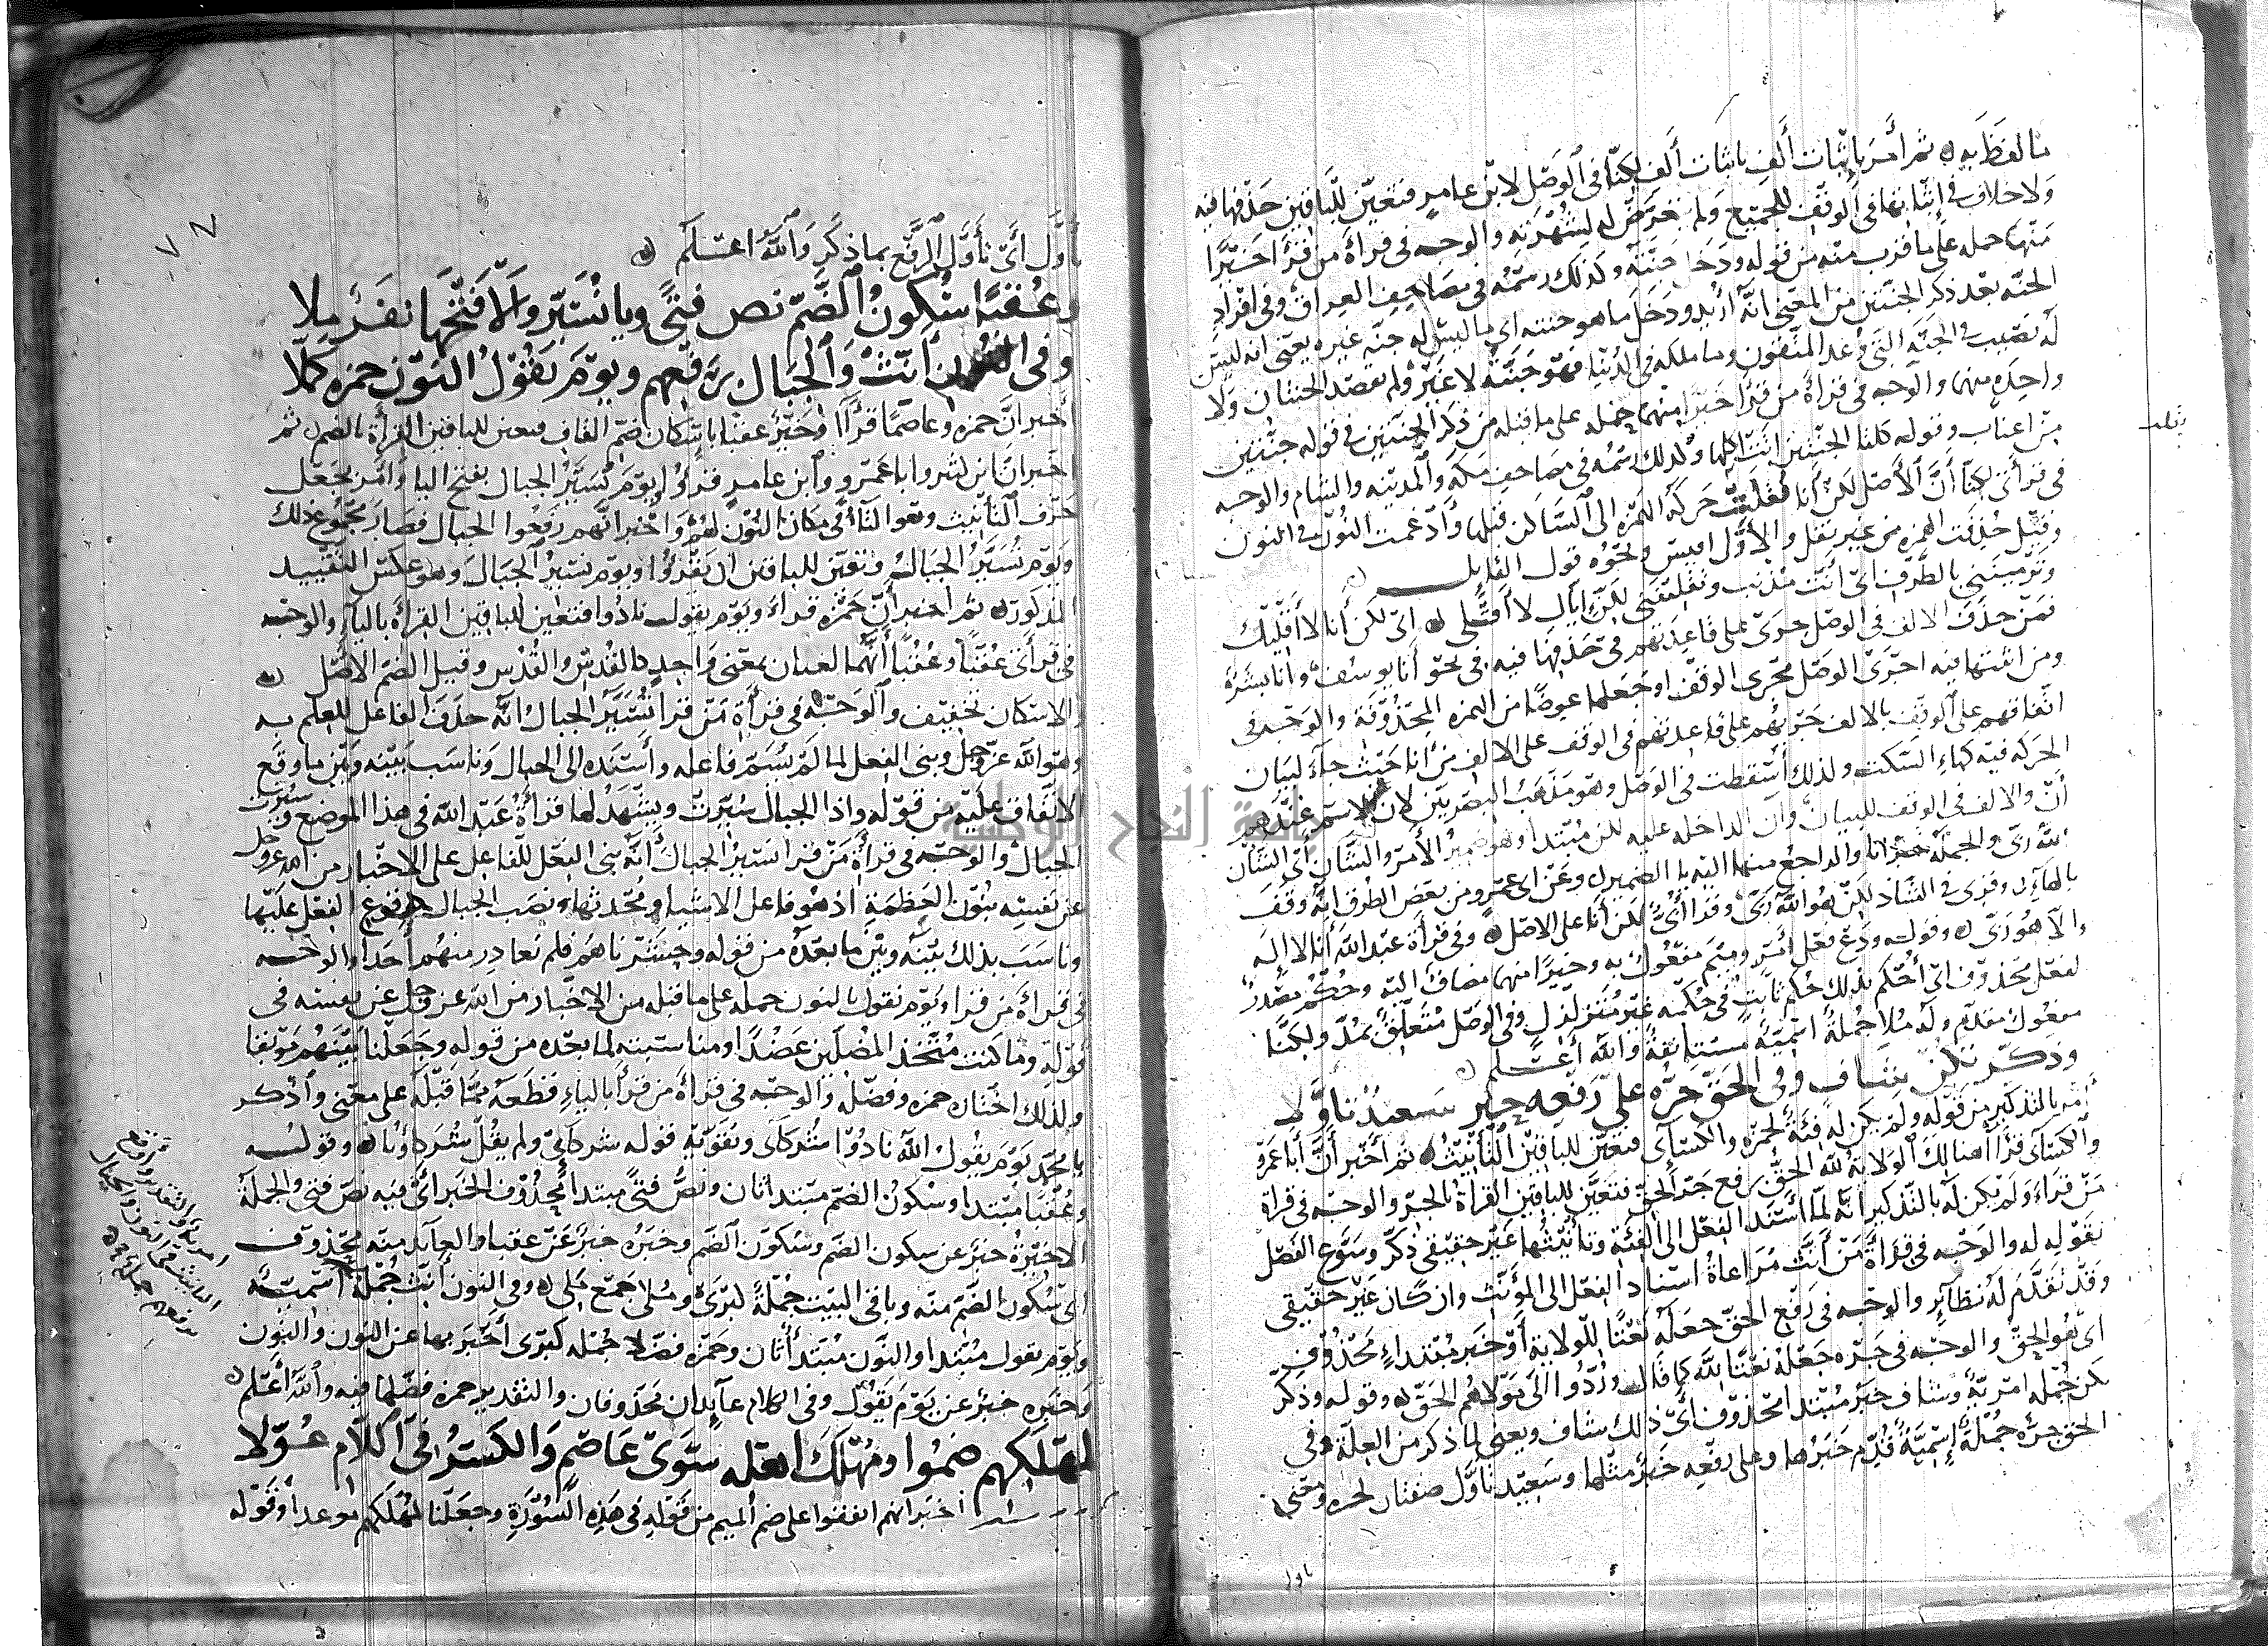 ما لفظ به ثم أمر باثبات ألف باثبات ألف لكنا فى الوصل لابن عامر فتعين للباقين حذفها فيه
ولا خلاف فى إثباتها فى الوقف للجميع ولم يتعرض له لشهرته والوجه فى قراءة من قرأ خيرا
منها حمله على ما قرب منه من قوله ودخل جنته وكذلك رسمه فى مصاحف العراق وفى افراد
الجنة بعد ذكر الجنتين من المعنى انه أريد ودخل ما هو جنته اى ما ليس له جنة غيره يعنى انه ليس
له نصيب فى الجنة التى وعد المتقون وما ملكه فى الدنيا فهو جنته لا غير ولم يقصد الجنتان ولا
واحدة منهما والوجه فى قراءة من قرأ خيرا منهما حمله على ما قبله من ذكر الجنتين فى قوله جنتين
من اعناب وقوله كلتا الجنتين اتت اكلها وكذلك رسمه فى مصاحف مكة والمدينة والشام والوجه
فى قرأتى لكنا أن الأصل لكن أنا فنقلت حركة الهمزة الى الساكن قبلها وأدغمت النون فى النون
وقيل حذفت الهمزة من غير نقل والاول اقيس ونحوه قول القايل
وترميننى بالطرف اى أنت مذنب وتقليننى لكن اياك لا أقلى اى لكن أنا لا أقليك
فمن حذف الالف فى الوصل جرى على قاعدتهم فى حذفها فيه فى نحو أنا يوسف وانا بشر
ومن اثبتها فيه اجرى الوصل مجرى الوقف او جعلها عوضا من الهمزة المحذوفة والوجه فى
اتفاقهم على الوقف بالالف جريهم على قاعدتهم فى الوقف على الالف من أنا حيث جاء لبيان
الحركة فيه كهاء السكت ولذلك أسقطت فى الوصل وهو مذهب البصريين لان الاسم عندهم
أن والالف فى الوقف للبيان وأن الداخلة عليه لكن مبتدا وهو ضمير الأمر والشان اى الشان
الله ربى والجملة خبر انا والراجع منها اليه يا الضمير وعن ابى عمرو من بعض الطرق انه وقف
بالهاء وقرى فى الشاذ لكن هو الله ربى وقرأ أبى لكن أنا على الاصل وفى قراءة عبد الله أنا لا اله
الا هو ربى وقوله ودع فعل أمر وميم مفعول به وخيرا منهما مضاف اليه وحكم مصدر
لفعل محذوف اى أحكم بذلك حكم ثابت فى حكمه غير متزلزل وفى الوصل متعلق بمد ولكنا
مفعول مقدم وله ملا جملة اسمية مستانفة والله أعلم
وذكر تكن شاف وفى الحق جره على رفعه حبر سعيد تاولا
أمر بالتذكير من قوله ولم يكن له فئة لحمزة والكسائى فتعين للباقين التأنيث ثم أخبر أن أبا عمرو
والكسائى قرأا هنالك الولاية لله الحق برفع جر الحق فتعين للباقين القراءة بالجر والوجه فى قراءة
من قراء ولم يكن له بالتذكير انه لما أسند الفعل الى الفئة وتأنيثها غير حقيقى ذكر وسوغ الفصل
بقوله له والوجه فى قراءة من أنث مراعاة اسناد الفعل الى المؤنث وان كان غير حقيقى
وقد تقدم له نظاير والوجه فى رفع الحق جعله نعتا للولاية أو خبر مبتداء محذوف
اى هو الحق والوجه فى جره جعله نعتا لله كما قال وردوا الى مولاهم الحق وقوله وذكر
تكن جملة امرية وشاف خبر مبتدا محذوف أى ذلك شاف ويعنى لما ذكر من العلة وفى
الحق جره جملة اسمية قدم خبرها وعلى رفعه خبر مثلها وسعيد تأول صفتان لحبر ومعنى
تاول
ينقله
٧٧
تأول أى تأول الرفع بما ذكر والله اعلم
وعقبا سكون الضم نص فتى ويا نسير والا فتحها نفر ملا
وفى النون أنث والجبال برفعهم ويوم يقول النون حمزة كملا
أخبر ان حمزة وعاصما قرأا وخير عقبا باسكان ضم القاف فتعين للباقين القرأة بالضم ثم
اخبر ان ابن كثير وابا عمرو وابن عامر قرأوا ويوم تسير الجبال بفتح اليا وأمر بجعل
حرف التأنيث وهو التاء فى مكان النون لهم واخبر انهم رفعوا الجبال فصار مجموع ذلك
ويوم تسير الجبال وتعين للباقين ان يقرؤا ويوم نسير الجبال وهو عكس التقييد
المذكور ثم اخبر أن حمزة قراء ويوم نقول نادوا فتعين للباقين القراءة بالياء والوجه
فى قرأتى عقبا وعقبا أنهما لغتان بمعنى واحد كالقدس والقدس وقيل الضم الاصل
والاسكان تخفيف والوجه فى قرأة من قرأ تسير الجبال انه حذف الفاعل للعلم به
وهو الله عز وجل وبنى الفعل لما لم يسم فاعله وأسنده الى الجبال وناسب بينه وبين ما وقع
الاتفاق عليه من قوله واذا الجبال سيرت ويشهد لها قرأة عبد الله فى هذا الموضع وسيرت
الجبال والوجه فى قرأة من قرا نسير الجبال انه بنى الفعل للفاعل على الاخبار من الله عز وجل
عن نفسه بنون العظمة اذ هو فاعل الاشيا ومحدثها ونصب الجبال لوقوع الفعل عليها
وناسب بذلك بينه وبين ما بعده من قوله وحشرناهم فلم نغادر منهم أحدا والوجه
فى قراءة من قراء ويوم نقول بالنون حمله على ما قبله من الاخبار من الله عز وجل عن نفسه فى
قوله وما كنت متخذ المضلين عضدا ومناسبته لما بعده من قوله وجعلنا بينهم موبقا
ولذلك اختاره حمزة وفضله والوجه فى قراءة من قرأ بالياء قطعه مما قبله على معنى واذكر
يا محمد يوم يقول الله نادوا شركائى وتقويه قوله شركائى ولم يقل شركاؤنا وقوله
وعقبا مبتدا وسكون الضم مبتدا ثان ونص فتى مبتدا محذوف الخبر أى فيه نص فتى والجملة
الاخيرة خبر عن سكون الضم وسكون الضم وخبره خبر عن عقبا والعايد منه محذوف
اى سكون الضم منه وباقى البيت جملة كبرى وملا جمع ملى وفى النون أنث جملة
ويوم يقول مبتدا والنون مبتدأ ثان وحمزة فضلا جملة كبرى أخبر بها عن النون والنون
وخبره خبر عن يوم يقول وفى الكلام عايدان محذوفان والتقدير حمزة فضلها فيه والله أعلم
لمهلكهم ضموا ومهلك اهله سوى عاصم والكسر فى اللام عولا
أخبر انهم اتفقوا على ضم الميم من قوله فى هذه السورة وجعلنا لمهلكهم موعدا وقوله